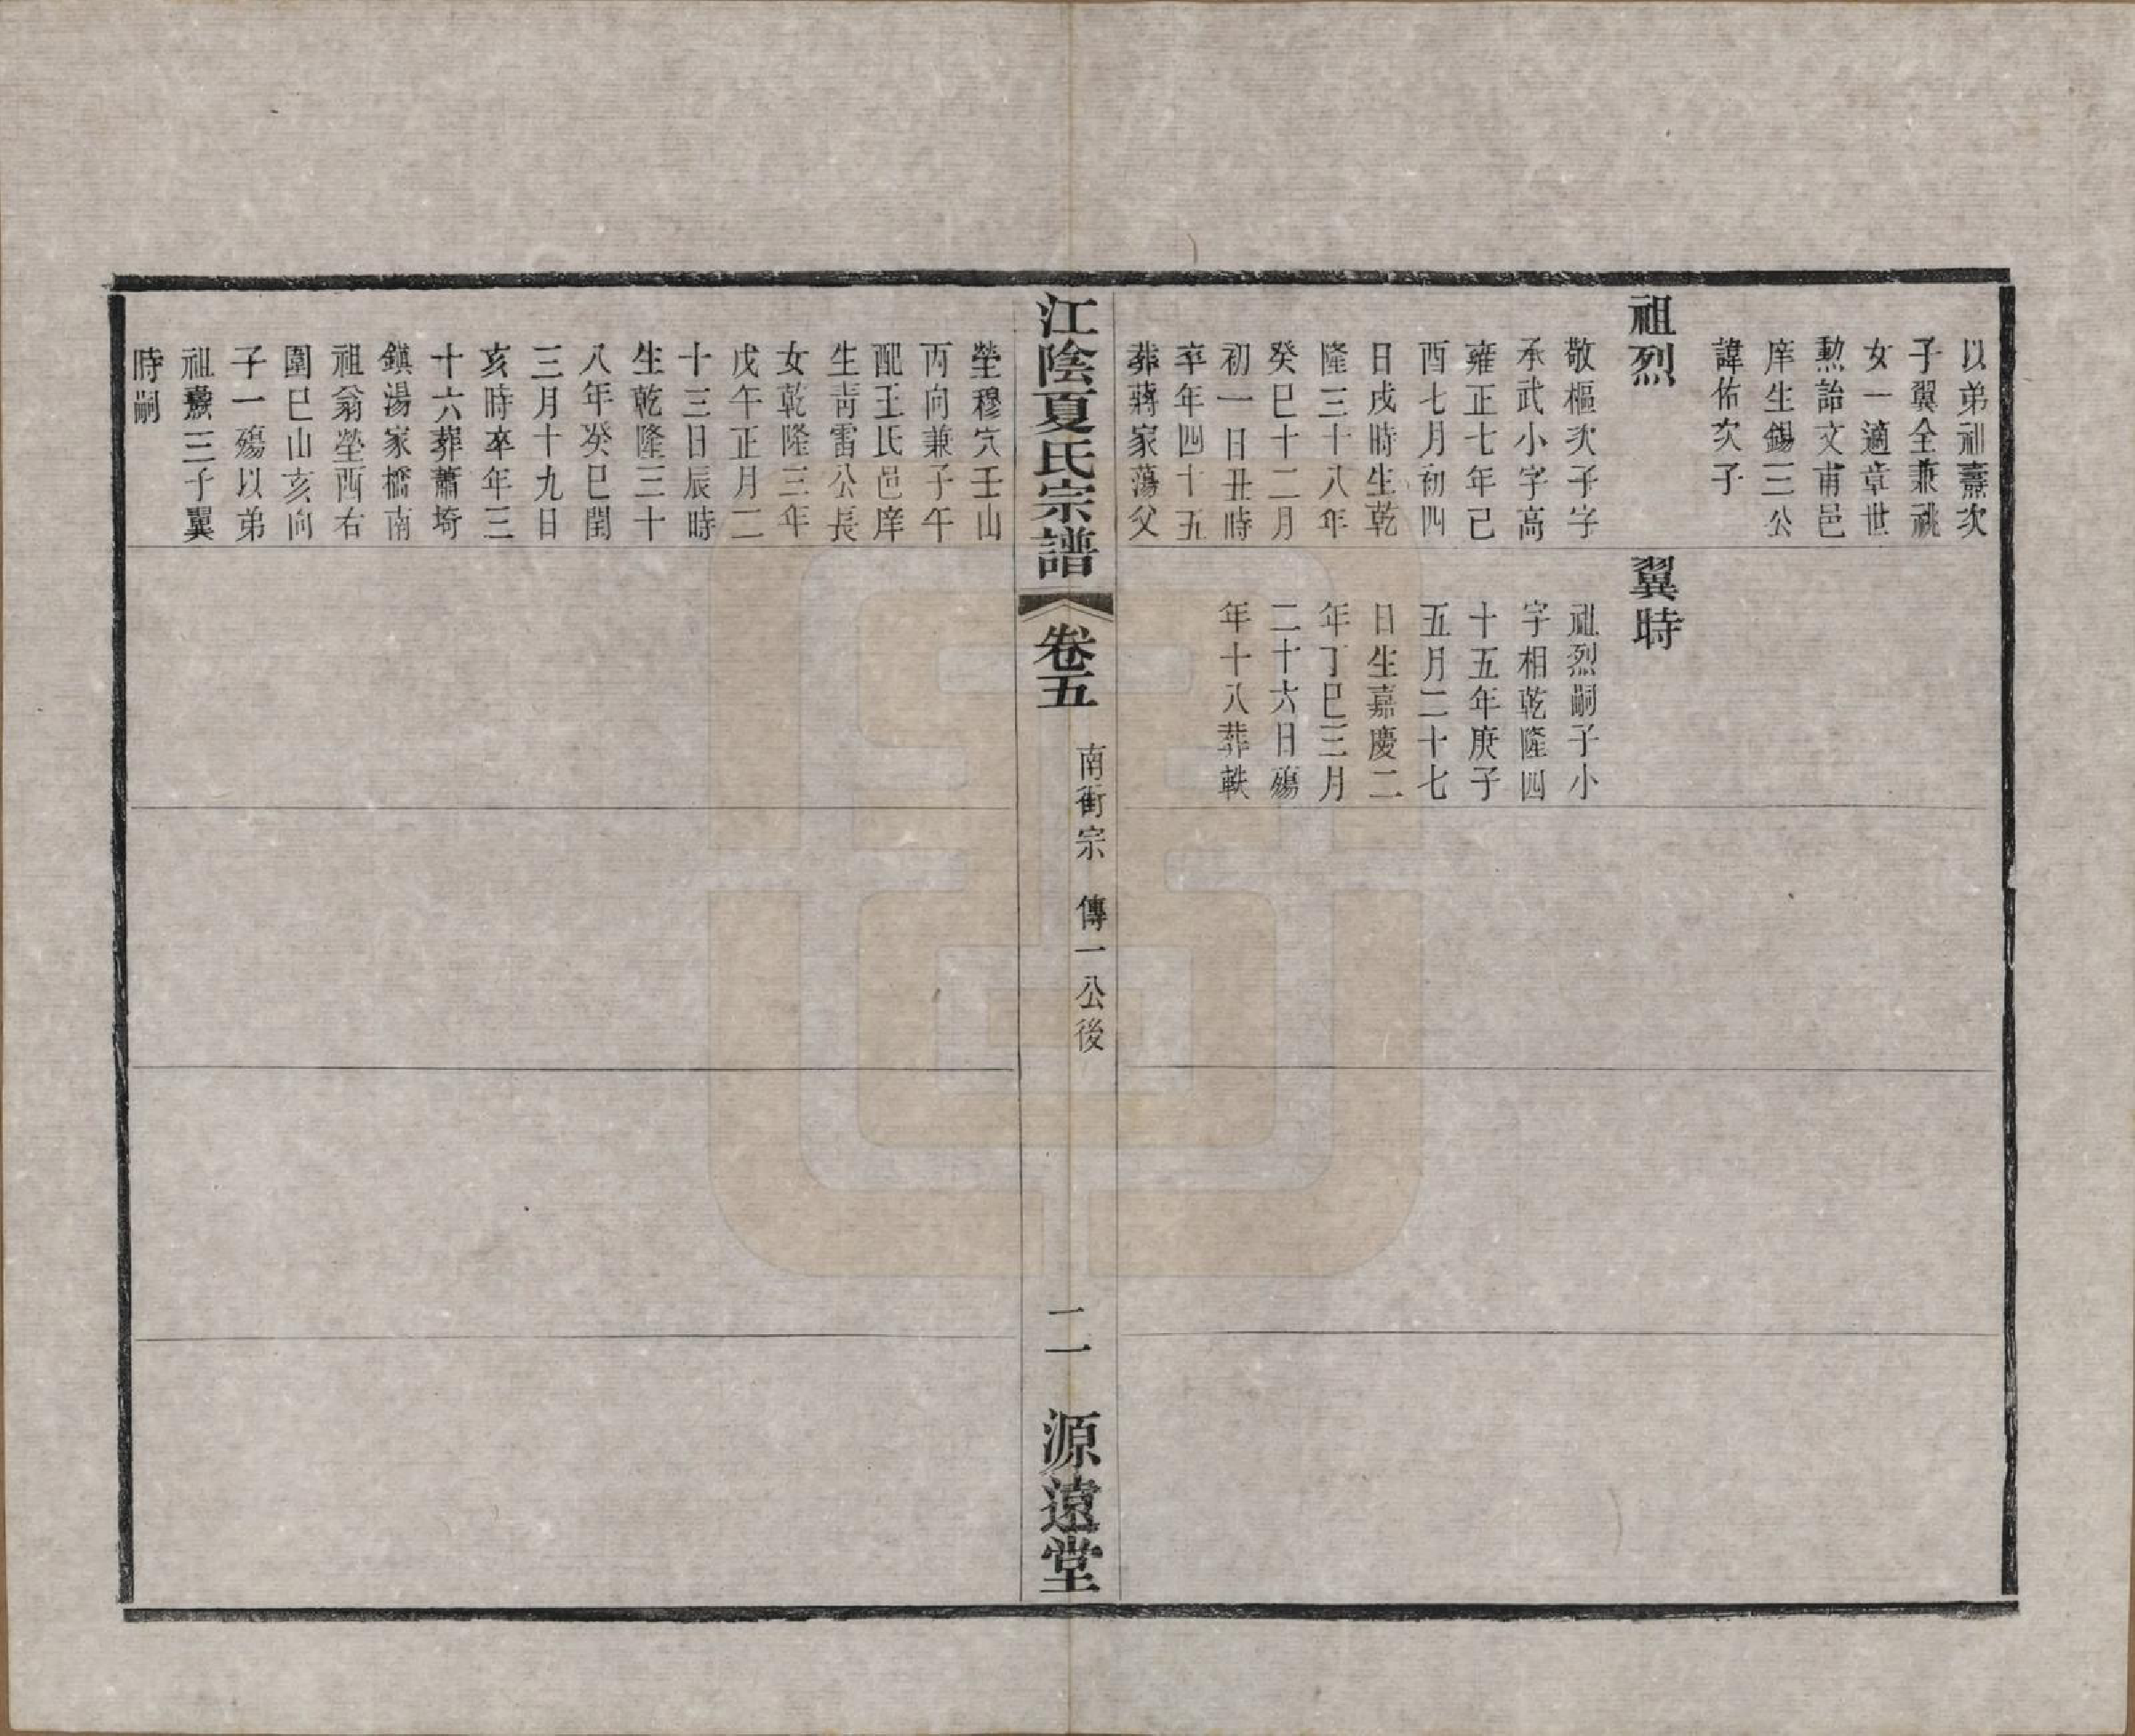 以弟祖燾次
子翼全兼祧
女一適章世
勲詒文甫邑
庠生錫三公
諱佑次子
祖烈
敬樞次子字
承武小字高
雍正七年己
酉七月初四
日戌時生乾
隆三十八年
癸巳十二月
初一日丑時
卒年四十五
葬蔣家蕩父
翼時
祖烈嗣子小
字相乾隆四
十五年庚子
五月二十七
日生嘉慶二
年丁巳三月
二十六日殤
年十八葬軼
江陰夏氏宗譜
卷五
南街宗 傳一公後
二
源遠堂
塋穆穴壬山
丙向兼子午
配王氏邑庠
生靑雷公長
女乾隆三年
戊午正月二
十三日辰時
生乾隆三十
八年癸巳閏
三月十九日
亥時卒年三
十六葬蕭埼
鎭湯家橋南
祖翁塋西右
圍巳山亥向
子一殤以弟
祖燾三子翼
時嗣